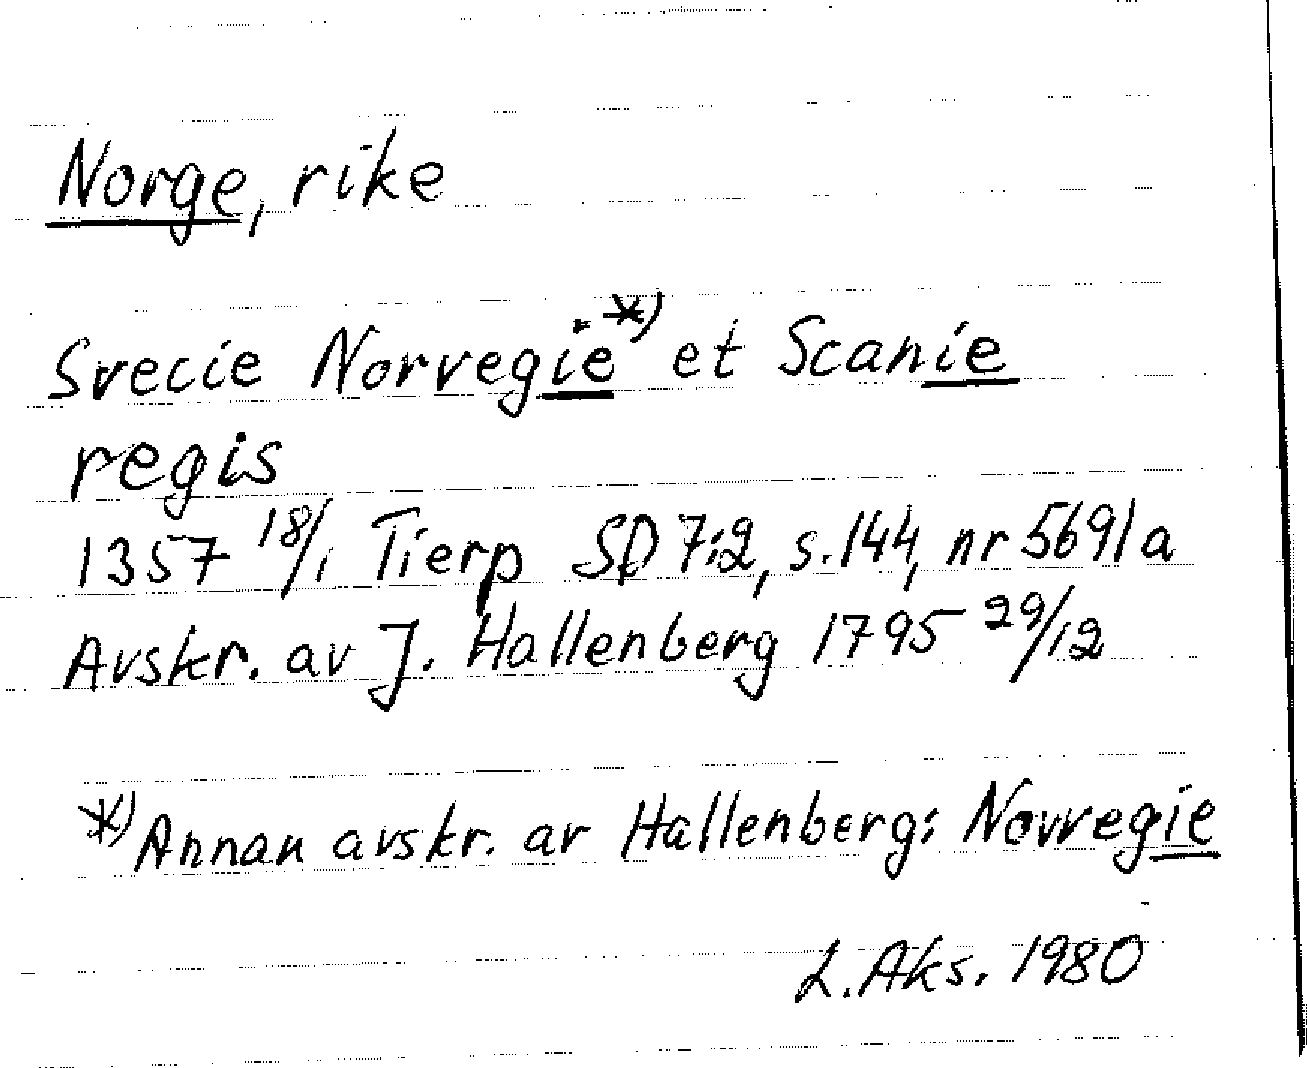 Norge, rike
Svecie Norvegie *) et Scanie
regis
1357 18/1 Tierp SD 7:2, s. 144, nr 5691 a
Avskr. av J. Hallenberg 1795 29/12
*) Annan avskr. av Hallenberg: Norregie
L. Aks. 1980